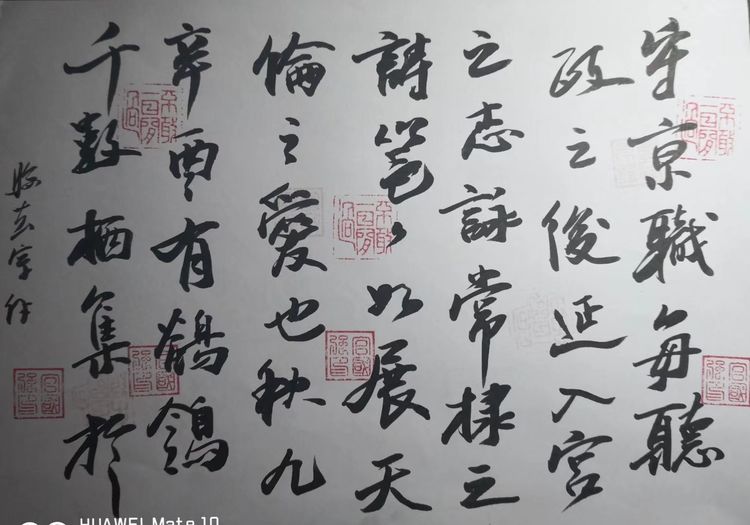 守京職每聽
政之後延入宮
之志詠常棣之
詩邕〻如展天
倫之愛也秋九
辛酉有鶺鴒
千數栖集於
HUAWEI Mate 10